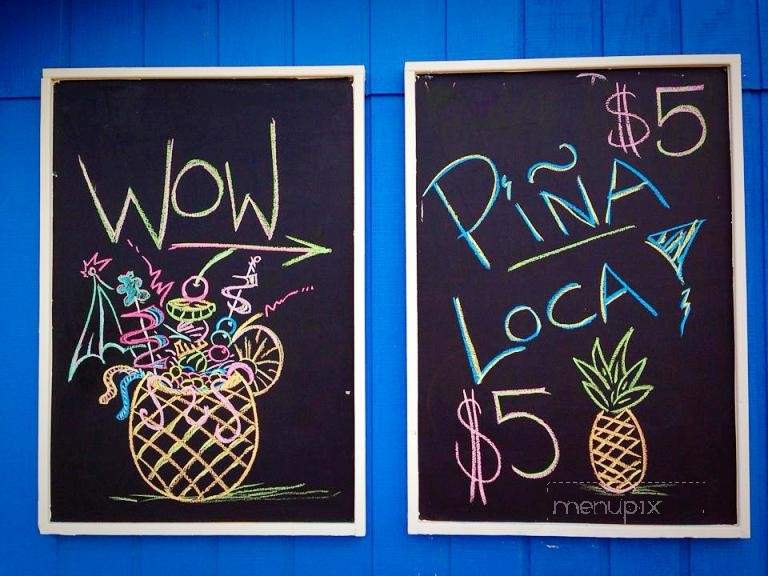 WOW
$5
PIÑA
LOCA
$5
menupix